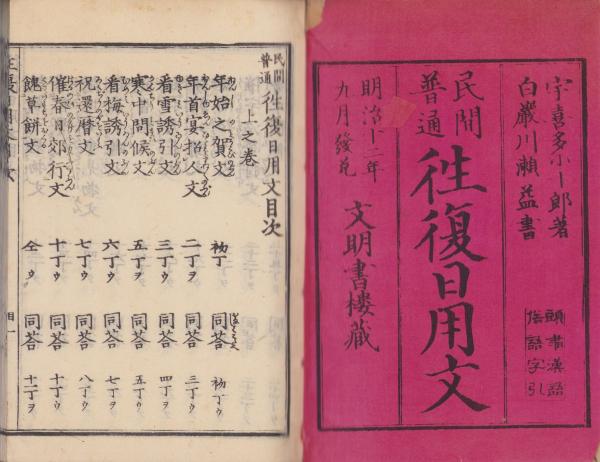 宇喜多小十郎著
白巌川瀬益書
頭書漢語
俗語字引
民間
普通
徃復日用文
明治十二年
九月發兌
文明書樓藏
民間
普通
徃復日用文目次
上之巻
年始之賀文 初丁 同荅 初丁ウ
年首宴招人文 二丁ヲ 同荅 三丁ウ
看雪誘引文 三丁ウ 同荅 四丁ヲ
寒中問候文 五丁ヲ 同荅 五丁ウ
看梅誘引文 六丁ウ 同荅 七丁ヲ
祝還暦文 七丁ウ 同荅 八丁ウ
催春日郊行文 十丁ウ 同荅 十丁ウ
餽草餅文 仝ウ 同荅 十一丁ヲ
目一